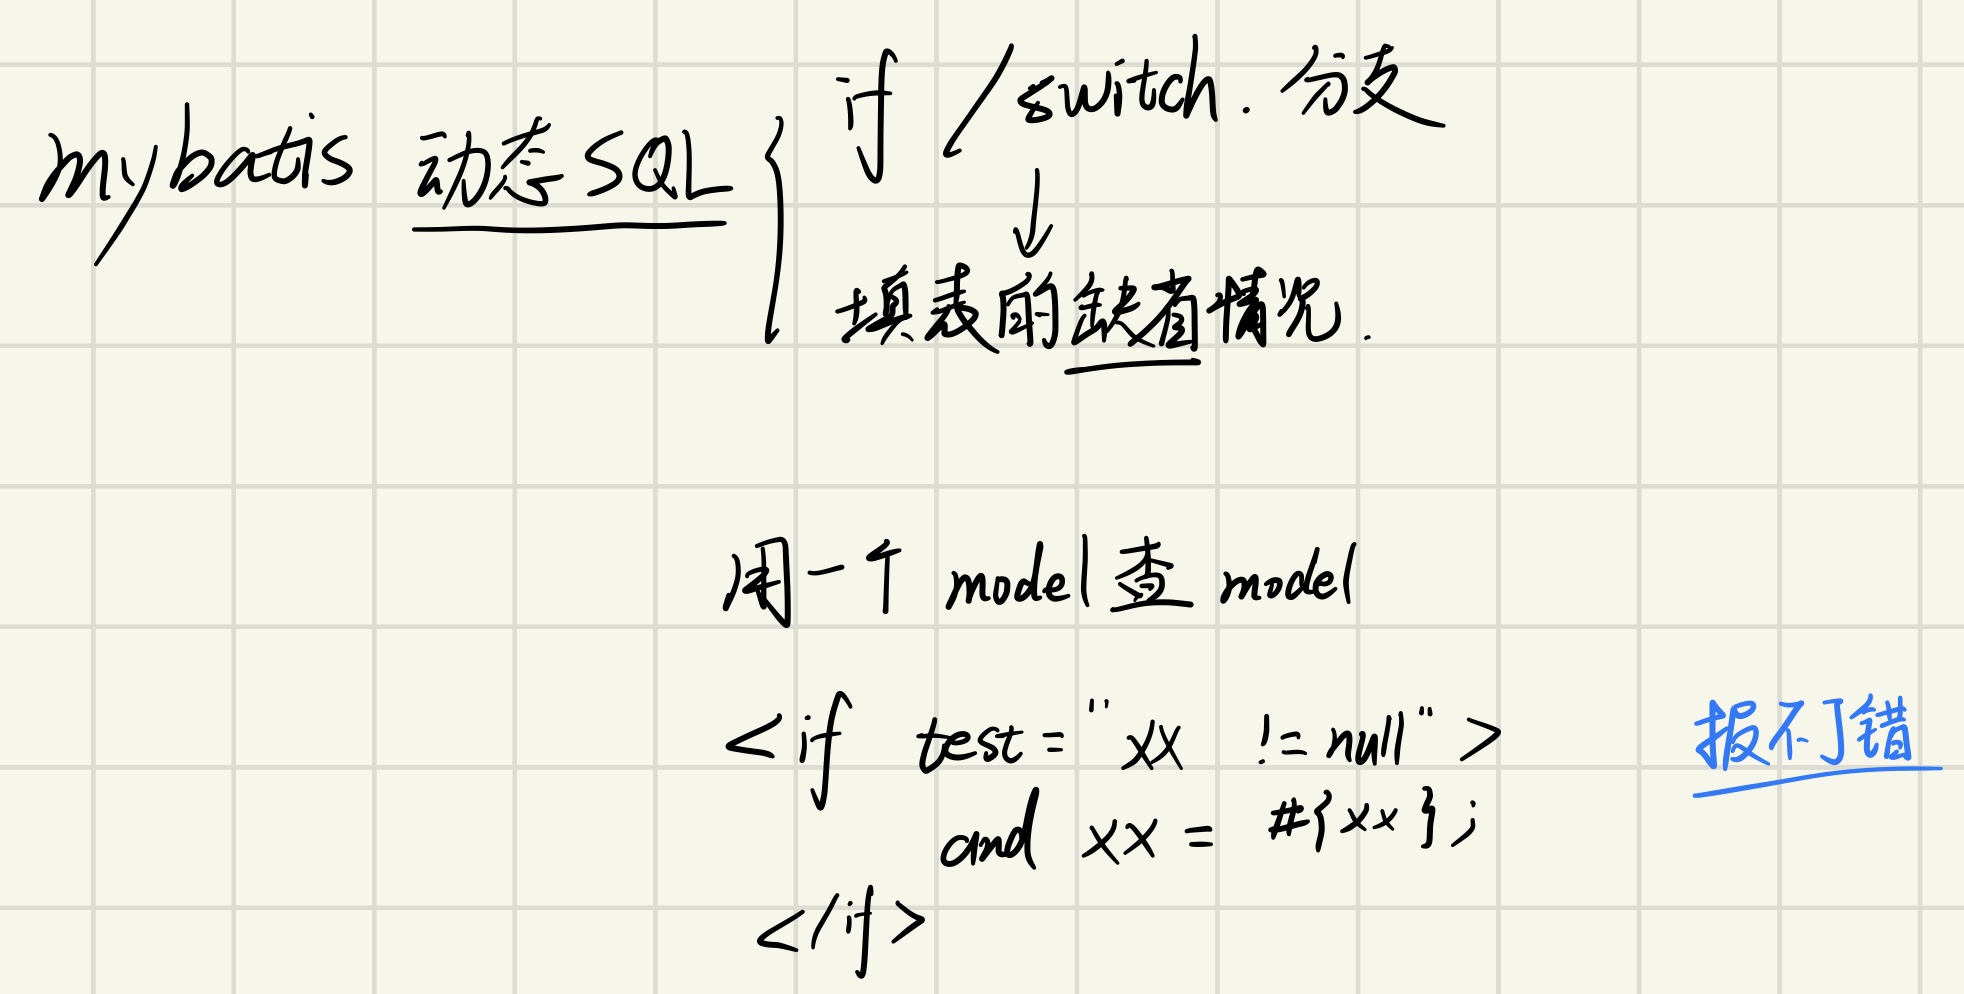 if / switch. 分支
mybatis 动态SQL
填表的缺省情况.
用一个 model 查 model
<if test = "xx != null" >
报不了错
and xx = #{xx};
</if>